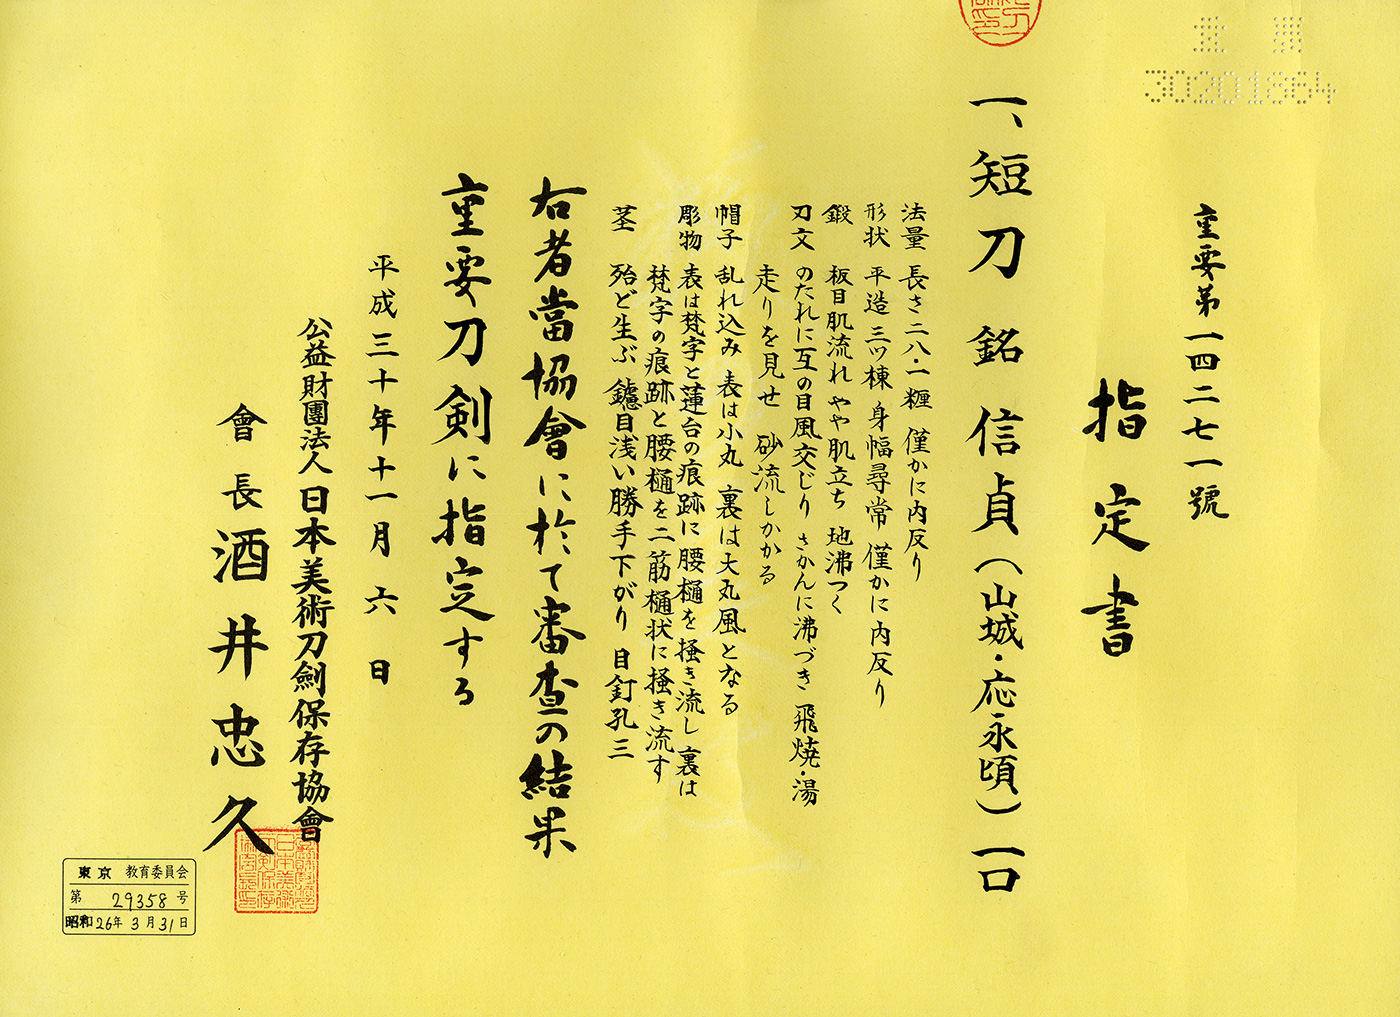 重要
30201864
重要第一四二七一號
指定書
一、短刀 銘 信貞(山城・応永頃) 一口
法量 長さ二八・一糎 僅かに内反り
形状 平造 三ツ棟 身幅尋常 僅かに内反り
鍛 板目肌流れ やや肌立ち 地沸つく
刃文 のたれに互の目風交じり さかんに沸づき 飛焼・湯
走りを見せ 砂流しかかる
帽子 乱れ込み 表は小丸 裏は大丸風となる
彫物 表は梵字と蓮台の痕跡に腰樋を掻き流し 裏は
梵字の痕跡と腰樋を二筋樋状に掻き流す
茎 殆ど生ぶ 鑢目浅い勝手下がり 目釘孔三
右者當協會に於て審査の結果
重要刀剣に指定する
平成三十年十一月六日
公益財團法人日本美術刀劍保存協會
會長 酒井忠久
東京 教育委員会
第 29358 号
昭和26年3月31日